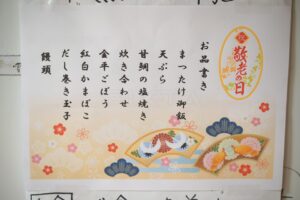 祝
敬老の日
お品書き
まつたけ御飯
天ぷら
甘鯛の塩焼き
炊き合わせ
金平ごぼう
紅白かまぼこ
だし巻き玉子
饅頭